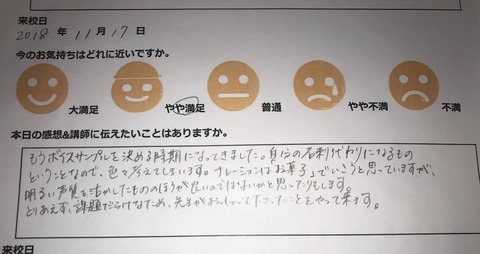 来校日
2018 年 11 月 17 日
今のお気持ちはどれに近いですか。
大満足 やや満足 普通 やや不満 不満
本日の感想&講師に伝えたいことはありますか。
もうボイスサンプルを決める時期になってきました。自分の名刺代わりになるもの
ということなので、色々考えてしまいます。ナレーションは「お菓子」でいこうと思っていますが、
明るい声質を活かしたもののほうが良いのではないかと思ったりもします。
とりあえず、課題だらけなため、先生がおっしゃって下さったことをやって来ます。
来校日